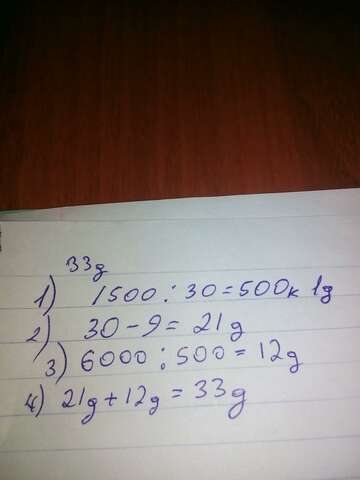 33g
1) 1500 : 30 = 500k 1g
2) 30 - 9 = 21g
3) 6000 : 500 = 12g
4) 21g + 12g = 33g